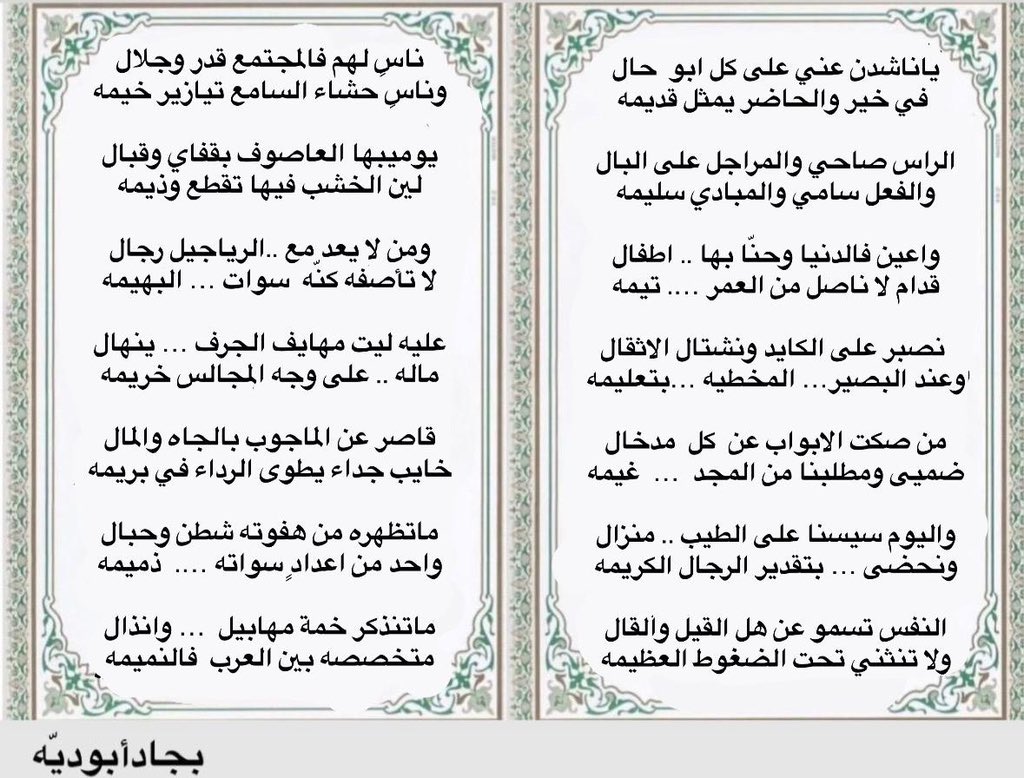 ياناشدن عني على كل ابو حال
في خير والحاضر يمثل قديمه
الراس صاحي والمراجل على البال
والفعل سامي والمبادي سليمه
واعين فالدنيا وحنّا بها .. اطفال
قدام لا ناصل من العمر .... تيمه
نصبر على الكايد ونشتال الاثقال
وعند البصير... المخطيه ...بتعليمه
من صكت الابواب عن كل مدخال
ضميى ومطلبنا من المجد ... غيمه
واليوم سيسنا على الطيب .. منزال
ونحضى ... بتقدير الرجال الكريمه
النفس تسمو عن هل القيل والقال
ولا تنثني تحت الضغوط العظيمه
ناسٍ لهم فالمجتمع قدر وجلال
وناسٍ حشاء السامع تيازير خيمه
يوميبها العاصوف بقفاي وقبال
لين الخشب فيها تقطع وذيمه
ومن لا يعد مع ..الرياجيل رجال
لا تأصفه كنّه سوات ... البهيمه
عليه ليت مهايف الجرف ... ينهال
ماله .. على وجه المجالس خريمه
قاصر عن الماجوب بالجاه والمال
خايب جداء يطوى الرداء في بريمه
ماتظهره من هفوته شطن وحبال
واحد من اعدادٍ سواته .... ذميمه
ماتنذكر خمة مهابيل ... وانذال
متخصصه بين العرب فالنميمه
بجادأبوديّه